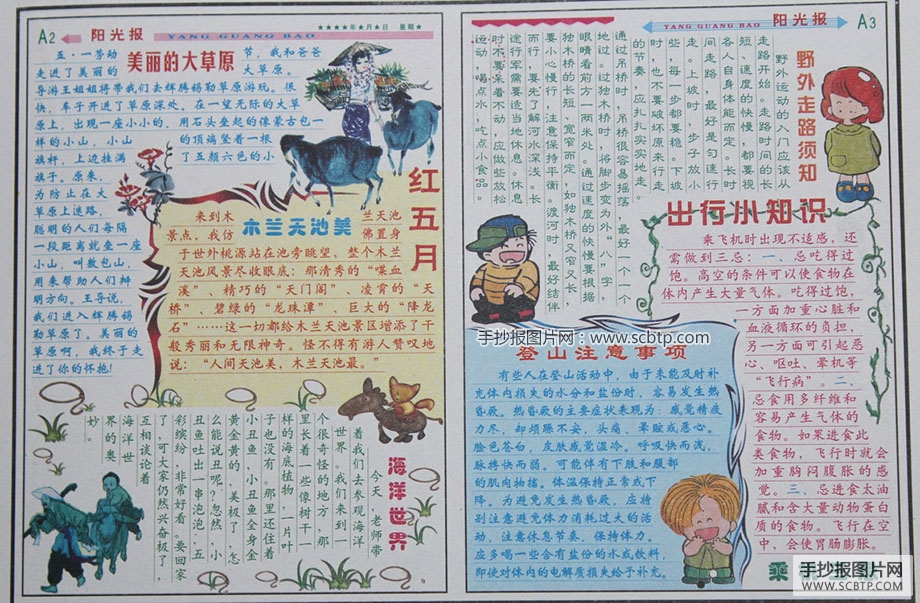 A2 阳光报 YANG GUANG BAO ★★★★年★月★日 星期★
美丽的大草原
五·一劳动 节，我和爸爸
走进了美丽的 大草原。
导游王姐姐将带我们去辉腾锡勒草原游玩。很
快，车子开进了草原深处。在一望无际的大草
原上，出现一座小小的、用石头垒起的像蒙古包一
样的小山，小山 的顶端竖着一根
旗杆，上边挂满 了五颜六色的小
旗子。原来，
为防止在大
草原上迷路，
聪明的人们每隔
一段距离就垒一座
小山，叫敖包山，
用来帮助人们辨
明方向。王导说，
我们进入辉腾锡
勒草原了。美丽的
草原啊，我终于走
进了你的怀抱！
红五月
木兰天池美
来到木 兰天池
景点，我仿 佛置身
于世外桃源站在池旁眺望，整个木兰
天池风景尽收眼底：那清秀的“喋血
溪”、精巧的“天门阁”、凌霄的“天
桥”、碧绿的“龙珠潭”、巨大的“降龙
石”……这一切都给木兰天池景区增添了千
般秀丽和无限神奇。怪不得有游人赞叹地
说：“人间天池美，木兰天池最。”
海洋世界
今天，老师带
着我们去参观海洋
世界。我们来到一
个很奇怪的地方，那
里长着一些像树干一
样的海底植物，一片叶
子也没有。那里还住着
小丑鱼，小丑鱼全身
黄金黄的，美极了，怎
么能说丑呢？忽然，小
丑鱼吐出一串泡泡，五
彩缤纷，非常好看。要回家
了，可大家仍然兴奋极了，
互相谈论着
海洋世
界的奥
妙。
YANG GUANG BAO 阳光报 A3
野外走路须知
野外运动的入门应该从
走路开始。走路时间的长
短、速度的快慢，都要视
各人自身体能而定。长时
间走路，最好是匀速行
走。上坡时，步子放小
些，每一步都要稳。下坡
时，也不要破坏原来行走
的节奏，应扎扎实实地走。
通过吊桥时，吊桥很容易摇荡，最好一个一个
地过。过独木桥时，将脚步变为外“八”字，
眼睛看前方一两米处。通过速度的快慢要根据
独木桥的长短、宽窄而定，如独木桥又窄又长，
要小心慢行，注意保持平衡。渡河时，最好结伴
而行，要先了解河水深浅。长
途行军需要适当地休息。休息
时不要呆着不动，应做些放松
运动，喝点水，吃点小食品。
出行小知识
乘飞机时出现不适感，还
需做到三忌：一、忌吃得过
饱。高空的条件可以使食物在
体内产生大量气体。吃得过饱，
一方面加重心脏和
血液循环的负担，
另一方面可引起恶
心、呕吐、晕机等
“飞行病”。二、
忌食用多纤维和
容易产生气体的
食物。如果进食此
类食物，飞行时就会
加重胸闷腹胀的感
觉。三、忌进食太油
腻和含大量动物蛋白
质的食物。飞行在空
中，会使胃肠膨胀。
乘
手抄报图片网：www.scbtp.com
登山注意事项
有些人在登山活动中，由于未能及时补
充体内损失的水分和盐份时，容易发生热
昏厥。热昏厥的主要症状表现为：感觉精疲
力尽，却烦躁不安、头痛、晕眩或恶心。
脸色苍白，皮肤感觉湿冷。呼吸快而浅，
脉搏快而弱。可能伴有下肢和腹部
的肌肉抽搐。体温保持正常或下
降。为避免发生热昏厥，应特
别注意避免体力消耗过大的活
动，注意休息节奏、保持体力。
应多喝一些含有盐份的水或饮料，
即使对体内的电解质损失给予补充。
手抄报图片网
WWW.SCBTP.COM